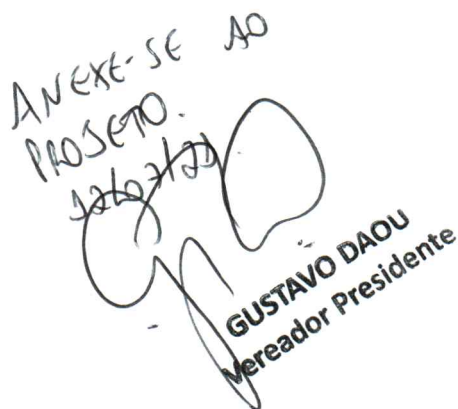 ANEXE-SE AO
PROJETO.
GUSTAVO DAOU
Vereador Presidente